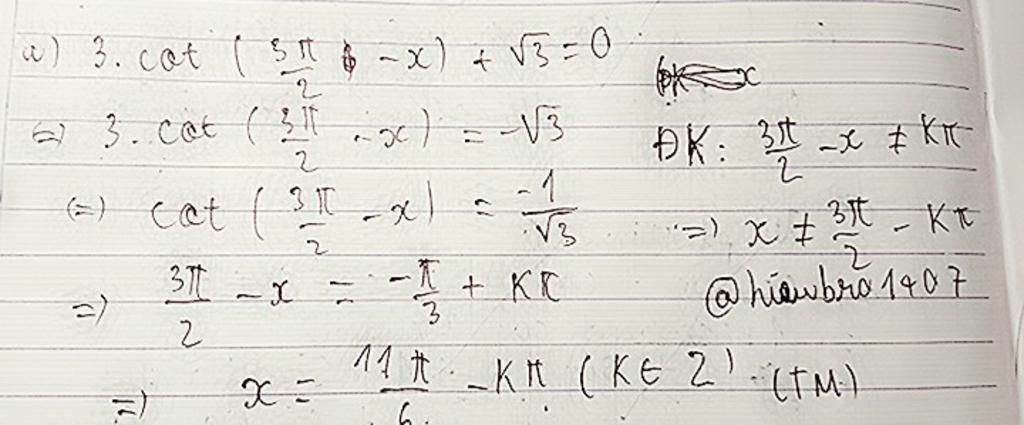 a) 3. cot (3π/2 - x) + √3 = 0
<=> 3. cot (3π/2 - x) = -√3
ĐK: 3π/2 - x ≠ Kπ
(=) cot (3π/2 - x) = -1/√3
=) x ≠ 3π/2 - Kπ
=) 3π/2 - x = -π/3 + Kπ
@hieubro1407
=) x = 11π/6 - Kπ (K ∈ Z) (TM)